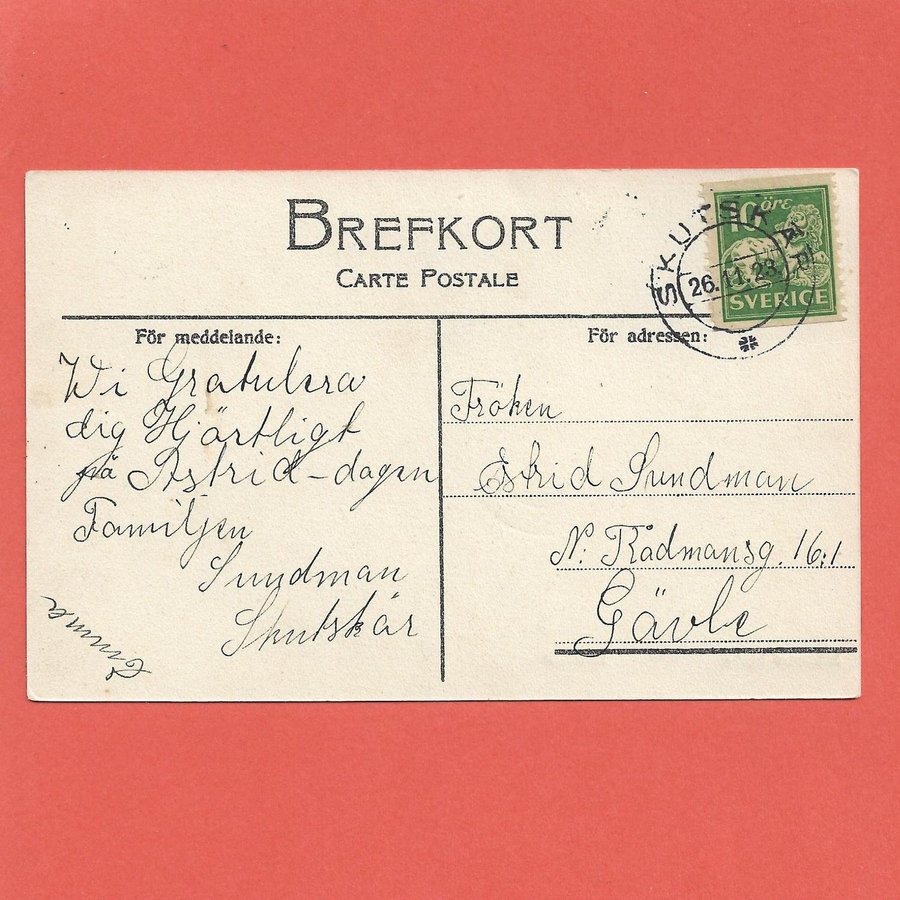 BREFKORT
CARTE POSTALE
10 öre
SVERIGE
SKUTSKÄR
26.11.23
För meddelande:
Wi Gratulera
dig Hjärtligt
på Astrid-dagen
Familjen
Sundman
Skutskär
Emma
För adressen:
Fröken
Estrid Sundman
N. Rådmansg. 16:1
Gävle